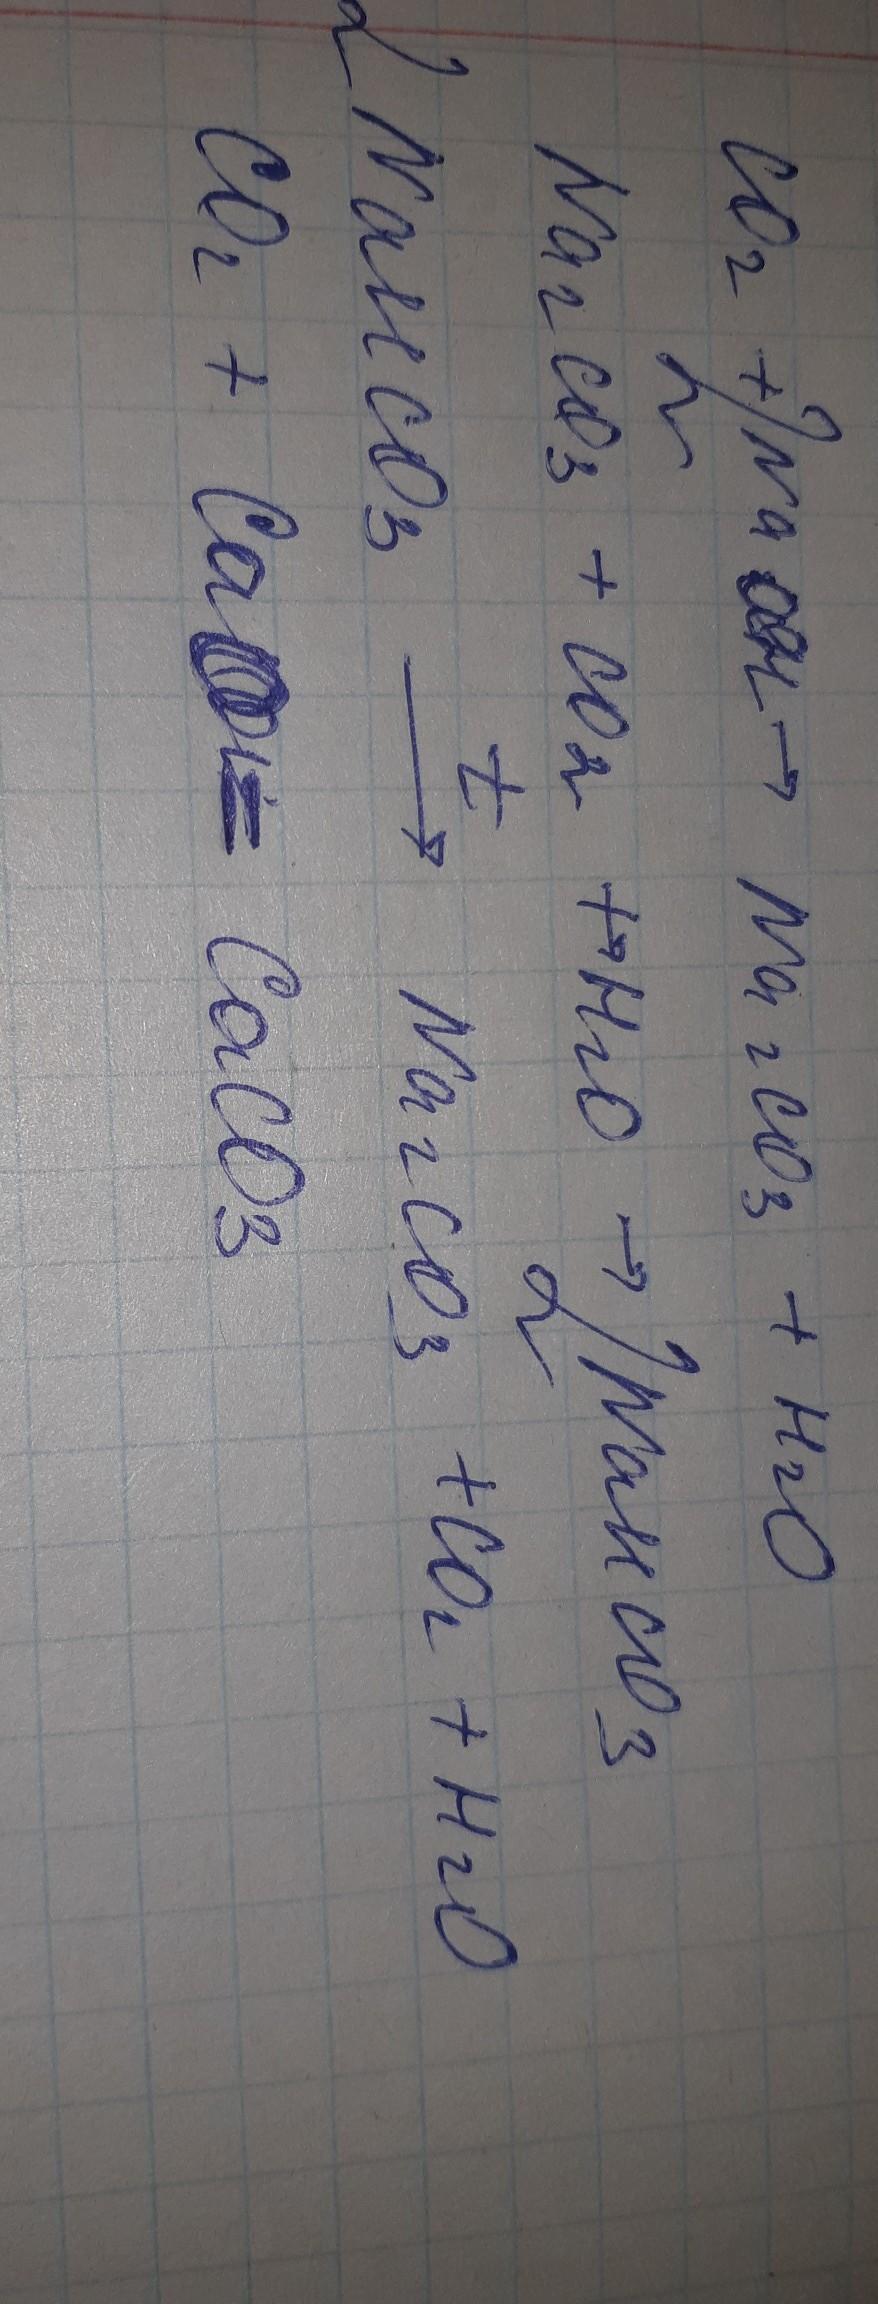 CO2 + 2NaOH → Na2CO3 + H2O
Na2CO3 + CO2 + H2O → 2NaHCO3
2NaHCO3 t→ Na2CO3 + CO2 + H2O
CO2 + CaO = CaCO3